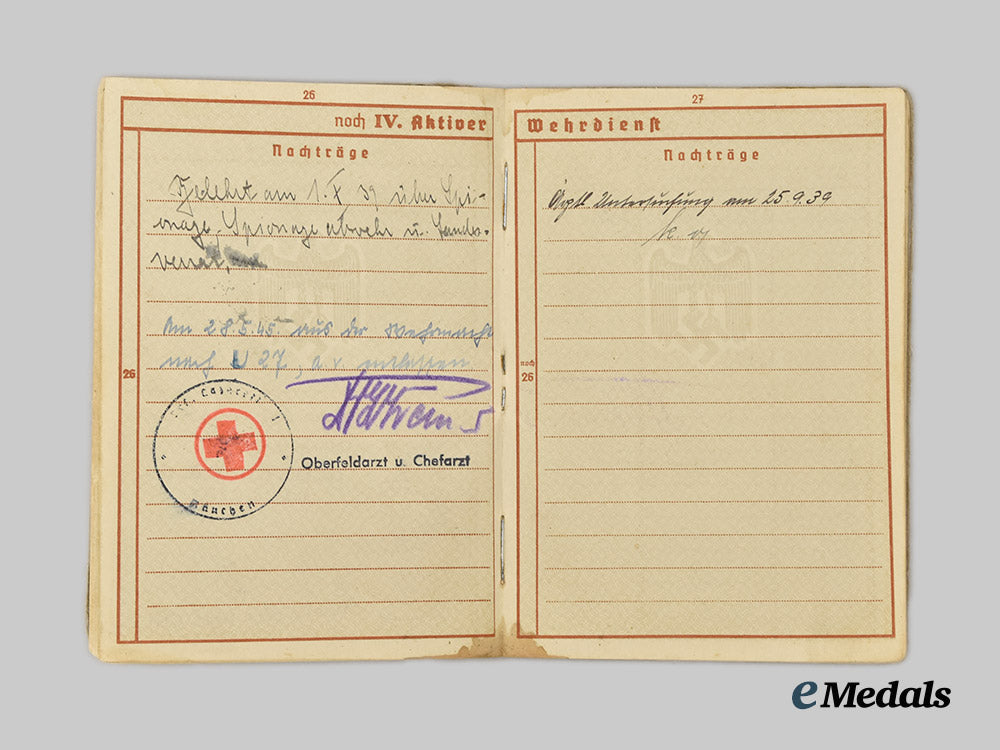 26
noch IV. Aktiver
Nachträge
Belehrt am 1.X 39 über Spi-
onage, Spionageabwehr u. Landes-
verrat,
26
Am 28.5.45 aus der Wehrmacht
nach U 27, a.v. entlassen
München
Oberfeldarzt u. Chefarzt
27
Wehrdienst
Nachträge
Ärztl. Untersuchung am 25.9.39
noch
26
eMedals